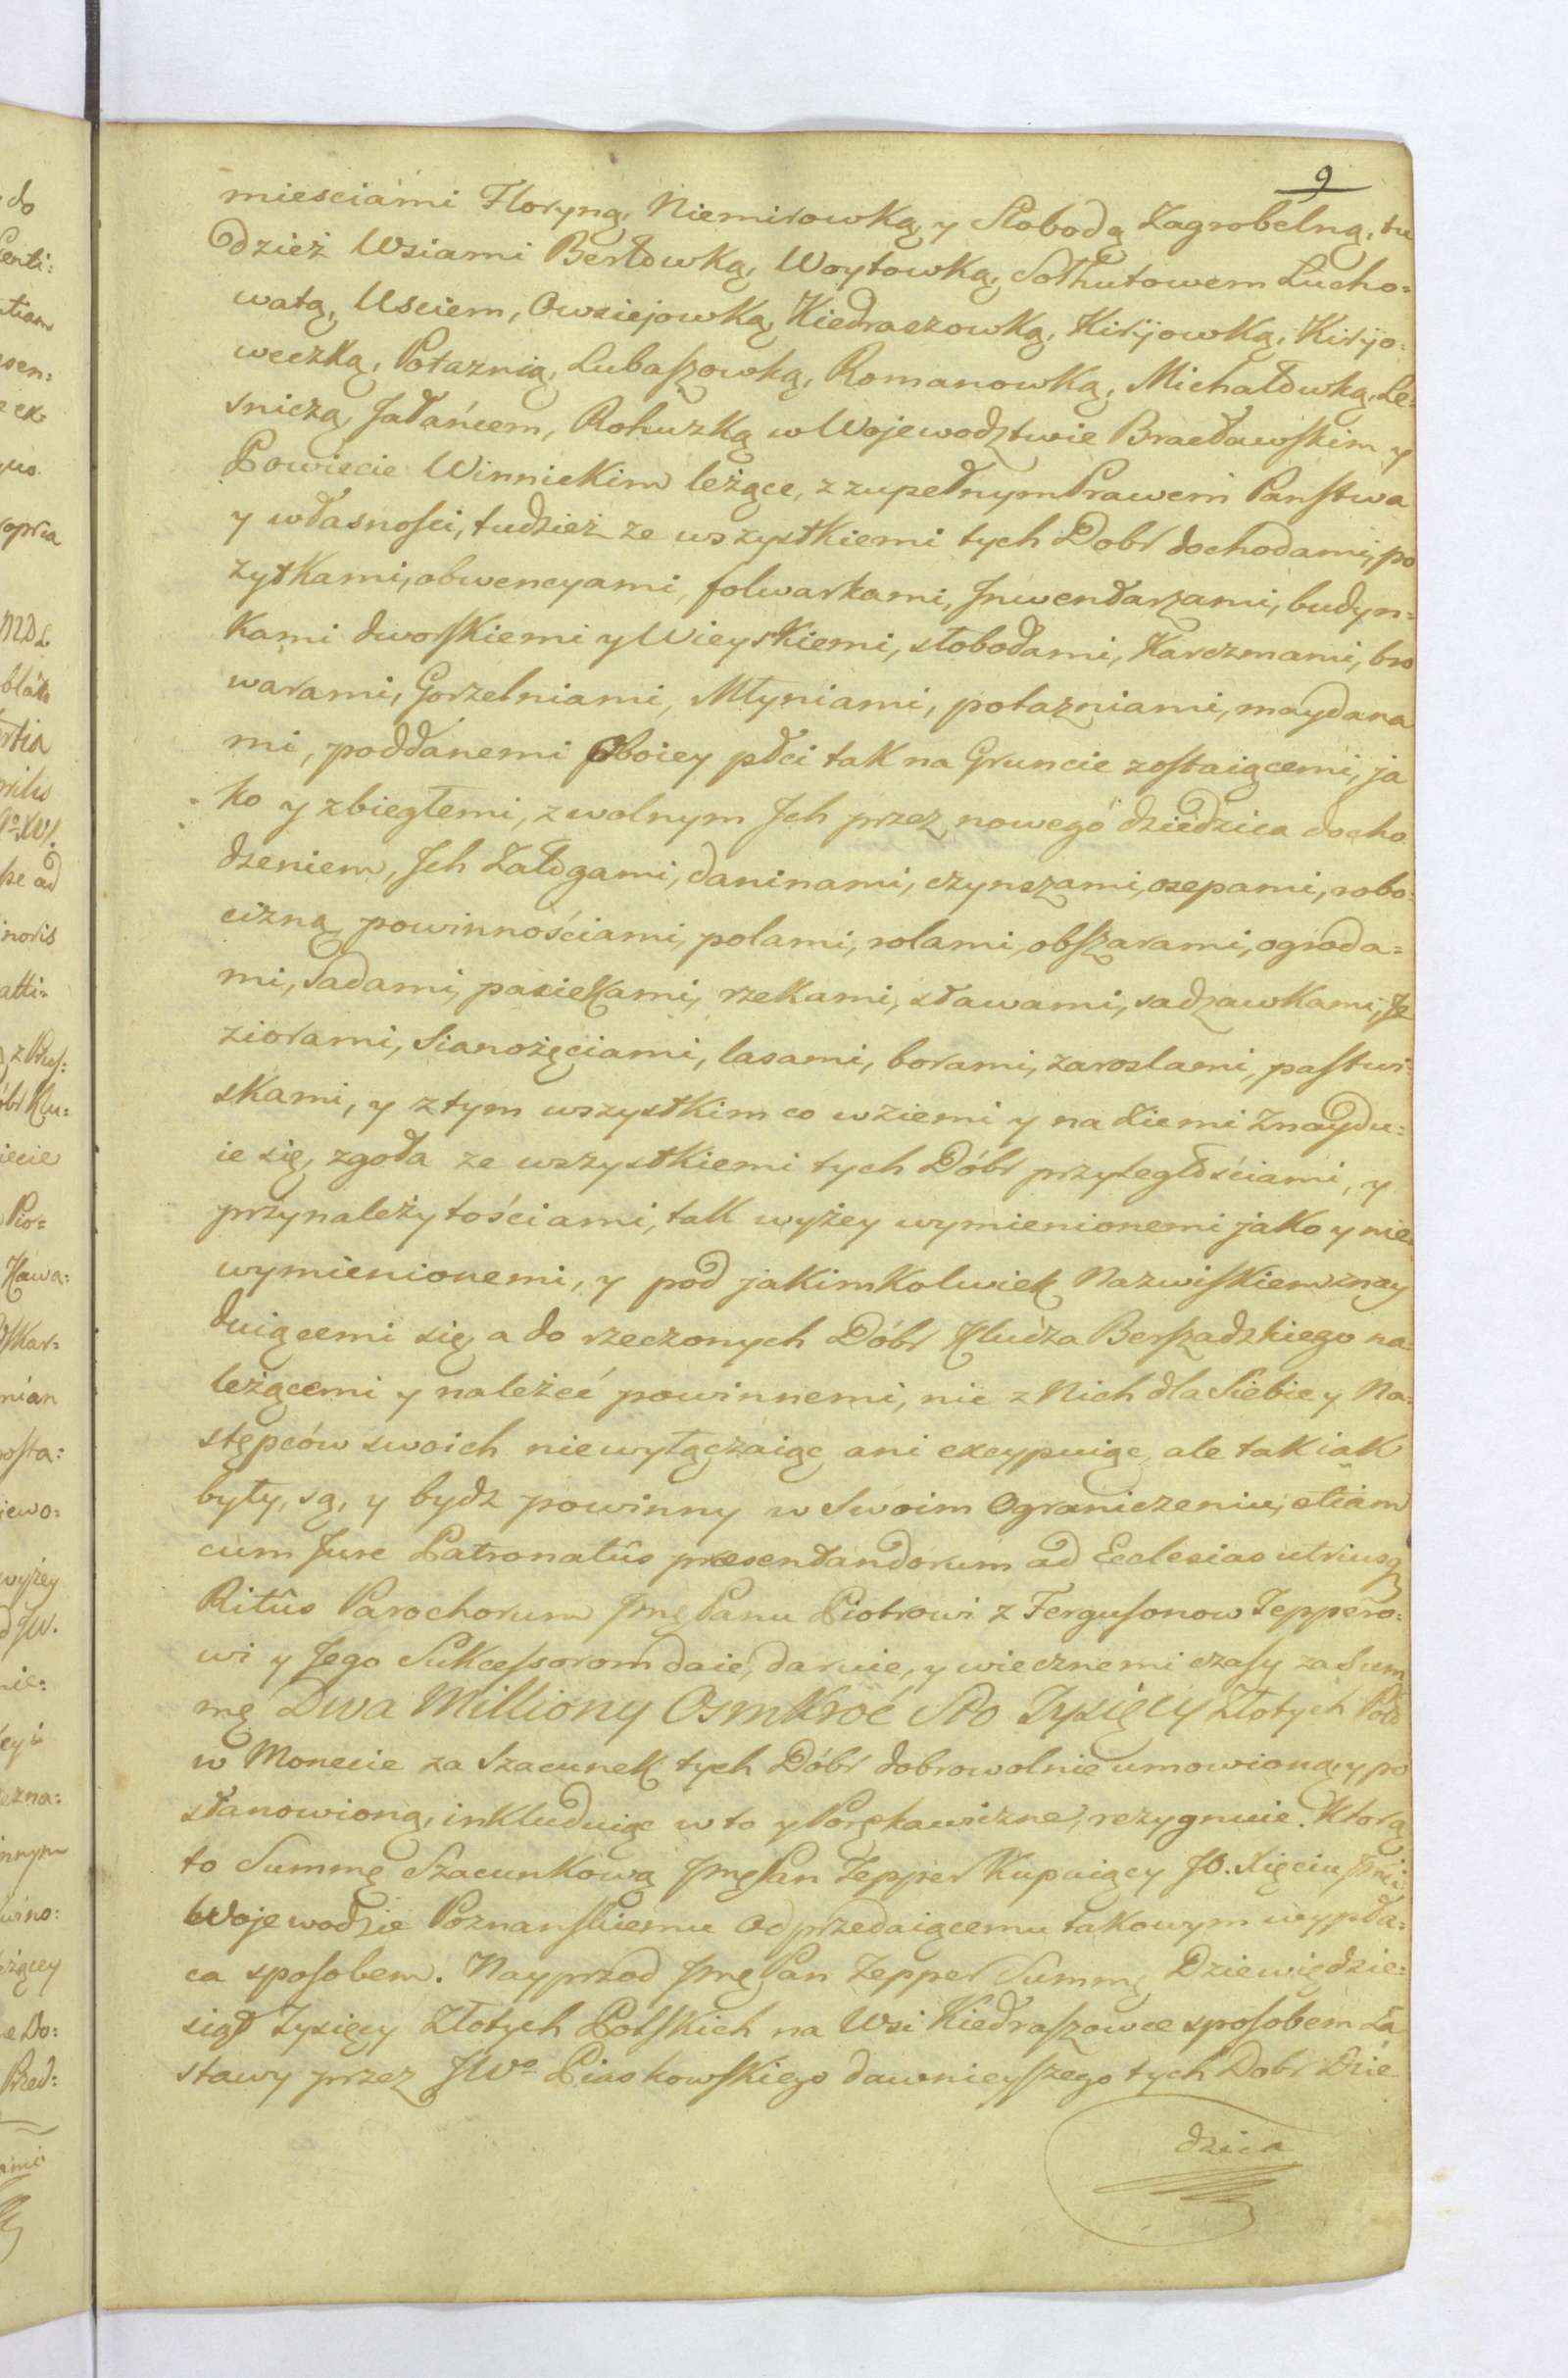 9
miesciámi Floryną, Niemirowką y Słobodą Zagrobelną, tu
dzież Wsiami Berłowką, Woytowką, Sołhutowem Lucho=
watą, Usciem, Owsiejowką Kiedraszowką, Kiryjowką, Kiryjo=
weczką, Potaznią, Lubaszowką, Romanowką, Michałowką, Le=
sniczą, Jałańcem, Rohuzką w Wojewodztwie Bracławskim y
Powiecie Winnickim leżące, z zupełnym Prawem Panstwa
y własnosci, tudzież ze wszystkiemi tych Dobr dochodami, po
zytkami, obwencyami, folwarkami, Jnwentarzami, budyn=
kami dworskiemi y Wieyskiemi, słobodami, Karczmami, bro
warami, Gorzelniami, Młyniami, potazniami, maydana
mi, poddanemi Oboiey płci tak na Gruncie zostaiącemi, ja
ko y zbiegłemi, z wolnym Jch przez nowego dziedzica docho
dzeniem, Jch Załogami, daninami, czynszami, osepami, robo=
cizną, powinnościami, polami, rolami, obszarami, ogroda=
mi, Sadami, pasiekami, rzekami, stawami, sadzawkami, Je
ziorami, Sianożęciami, lasami, borami, zaroslami, pastwi=
skami, y z tym wszystkim co w ziemi y na Ziemi Znaydu=
ie się, zgoła ze wszystkiemi tych Dóbr przyległościami, y
przynależytościami, tak wyżey wymienionemi jako y nie
wymienionemi, y pod jakimkolwiek Nazwiskiem znay
duiącemi się, a do rzeczonych Dóbr Klucza Berszadzkiego na=
leżącemi y należeć powinnemi, nic z Nich dla Siebie y Na=
stępców swoich niewyłączaiąc ani excypuiąc, ale tak iak
były, są, y bydz powinny w Swoim Ograniczeniu, etiam
cum Jure Patronatûs præsentandorum ad Ecclesias utriusq
Ritûs Parochorum Jmę Panu Piotrowi z Fergusonow Teppero=
wi y Jego Sukcessorom daie, daruie, y wiecznemi czasy za Sum
mę Dwa Milliony Osmkroć Sto Tysięcy Złotych Pols
w Monecie za Szacunek tych Dóbr dobrowolnie umowioną, y po
stanowioną, inkluduiąc w to y Porękawiczne, rezygnuie. Ktorą
to Summę Szacunkową Jmę Pan Tepper Kupuiący JO. Xięciu Jmći
Wojewodzie Poznanskiemu Odprzedaiącemu takowym wypła=
ca sposobem. Nayprzod Jmę Pan Tepper Summę Dziewięćdzie=
siąt Tysięcy Złotych Polskich na Wsi Kiedraszowce sposobem Za
stawy przez JWo Piaskowskiego dawnieyszego tych Dobr Dzie
dzica